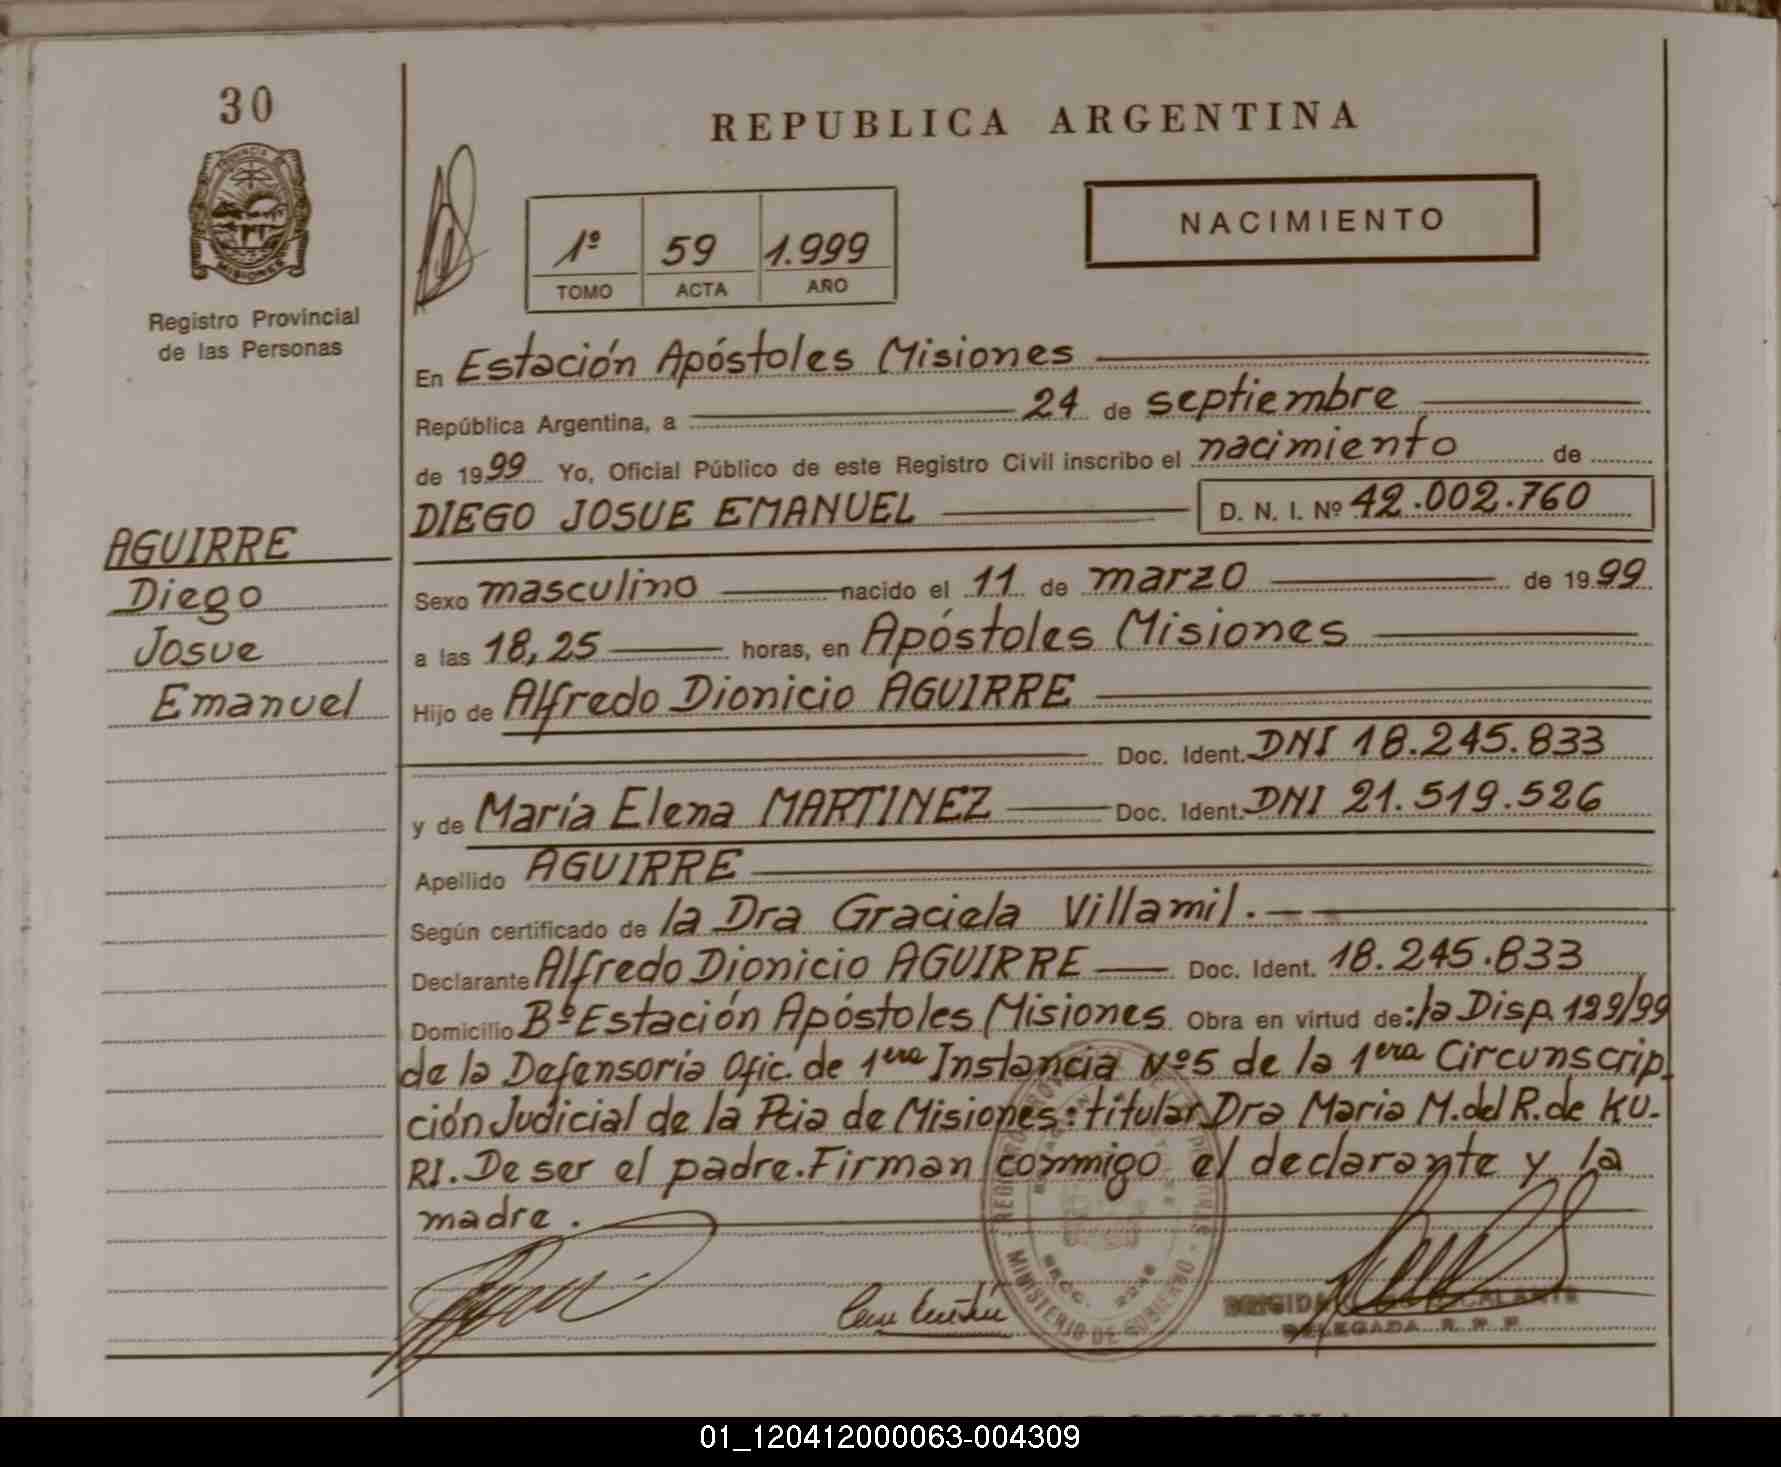 30
PROVINCIA DE
MISIONES
Registro Provincial
de las Personas
REPUBLICA ARGENTINA
1º 59 1.999
TOMO ACTA AÑO
NACIMIENTO
En Estación Apóstoles Misiones
República Argentina, a 24 de septiembre
de 1999 Yo, Oficial Público de este Registro Civil inscribo el nacimiento de
DIEGO JOSUE EMANUEL D. N. I. Nº 42.002.760
AGUIRRE
Diego
Josue
Emanuel
Sexo masculino nacido el 11 de marzo de 1999
a las 18,25 horas, en Apóstoles Misiones
Hijo de Alfredo Dionicio AGUIRRE
Doc. Ident. DNI 18.245.833
y de María Elena MARTINEZ Doc. Ident. DNI 21.519.526
Apellido AGUIRRE
Según certificado de la Dra Graciela Villamil.
Declarante Alfredo Dionicio AGUIRRE Doc. Ident. 18.245.833
Domicilio Bº Estación Apóstoles Misiones Obra en virtud de: la Disp. 129/99
de la Defensoria Ofic. de 1era Instancia Nº5 de la 1era Circunscrip_
ción Judicial de la Pcia de Misiones: titular Dra Maria M. del R. de KU-
RI. De ser el padre. Firman conmigo el declarante y la
madre.
MINISTERIO DE GOBIERNO
BRIGIDA
DELEGADA R. P. P.
01_120412000063-004309